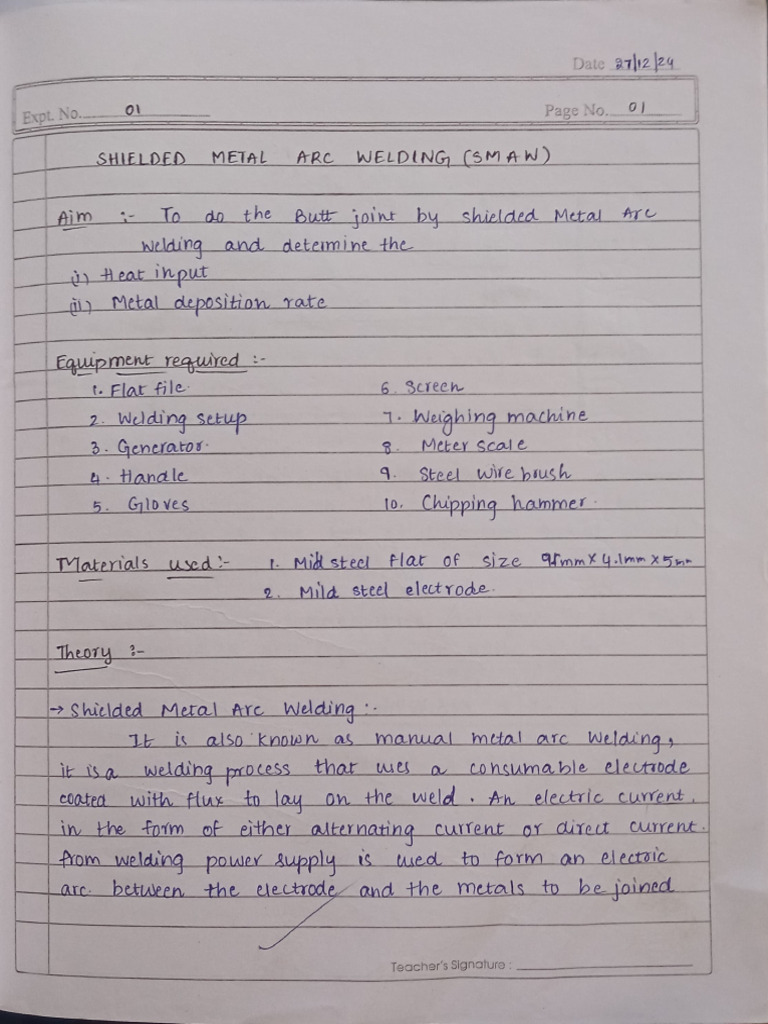 Date 27/12/24
Expt. No. 01
Page No. 01
SHIELDED METAL ARC WELDING (SMAW)
Aim :- To do the Butt joint by shielded Metal Arc
Welding and determine the
(i) Heat input
(ii) Metal deposition rate
Equipment required :-
1. Flat file.
2. Welding setup
3. Generator.
4. Handle
5. Gloves
6. Screen
7. Weighing machine
8. Meter scale
9. Steel wire brush
10. Chipping hammer.
Materials used :- 1. Mild steel flat of size 95mm x 4.1mm x 5mm
2. Mild steel electrode.
Theory :-
→ Shielded Metal Arc Welding :-
It is also known as manual metal arc welding,
it is a welding process that uses a consumable electrode
coated with flux to lay on the weld. An electric current,
in the form of either alternating current or direct current.
from welding power supply is used to form an electric
arc. between the electrode and the metals to be joined
Teacher's Signature :